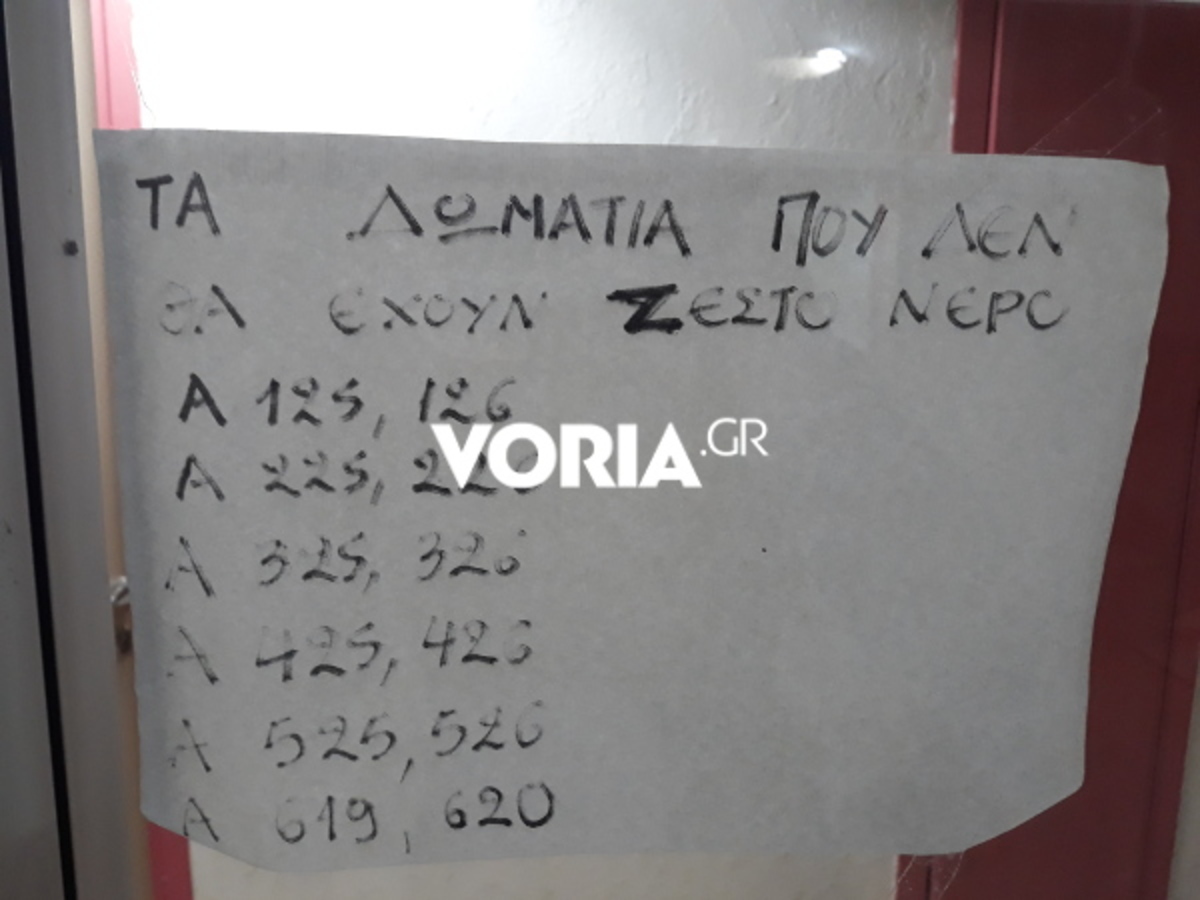 ΤΑ ΔΩΜΑΤΙΑ ΠΟΥ ΛΕΝ
ΘΑ ΕΧΟΥΝ ΖΕΣΤΟ ΝΕΡΟ
Α 125, 126
VORIA.GR
Α 225, 226
Α 325, 326
Α 425, 426
Α 525, 526
Α 619, 620